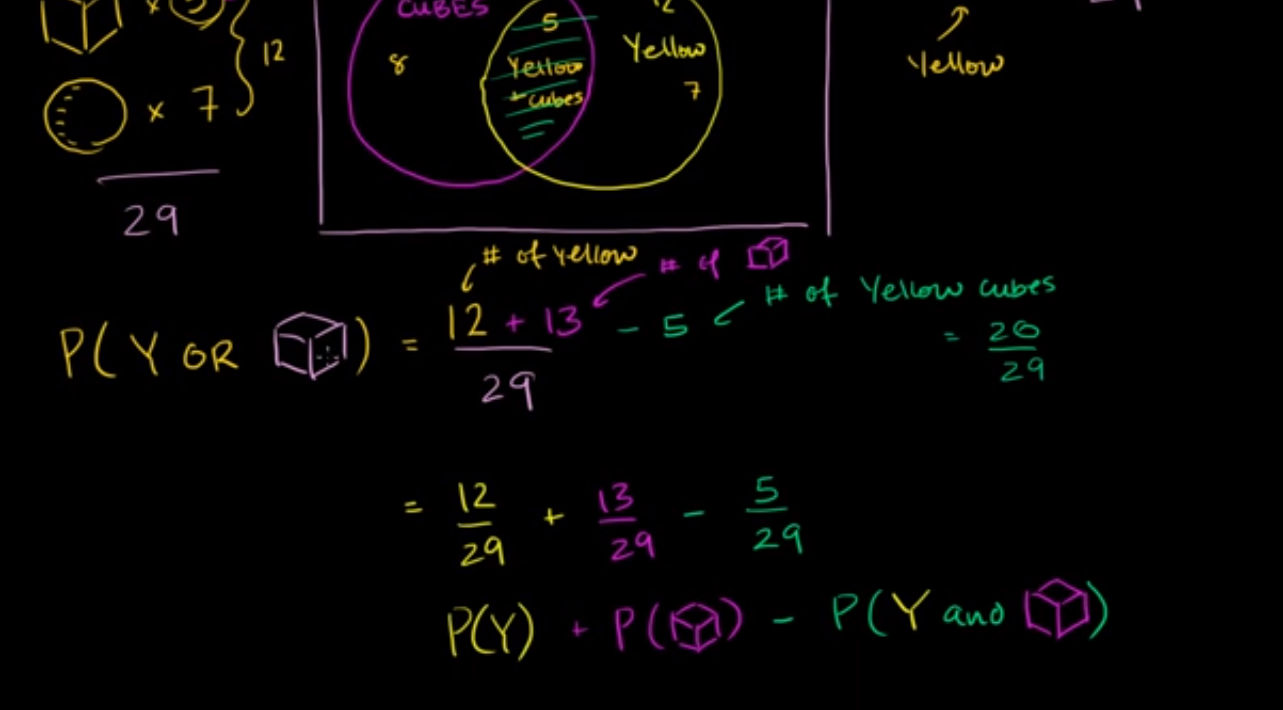 CUBES
5
12
x 5
12
8
Yellow
Yellow
+ cubes
7
Yellow
x 7
29
# of Yellow
# of
# of Yellow cubes
P(Y OR ) = 12 + 13 - 5 = 20
29 29
= 12 + 13 - 5
29 29 29
P(Y) + P( ) - P(Y and )